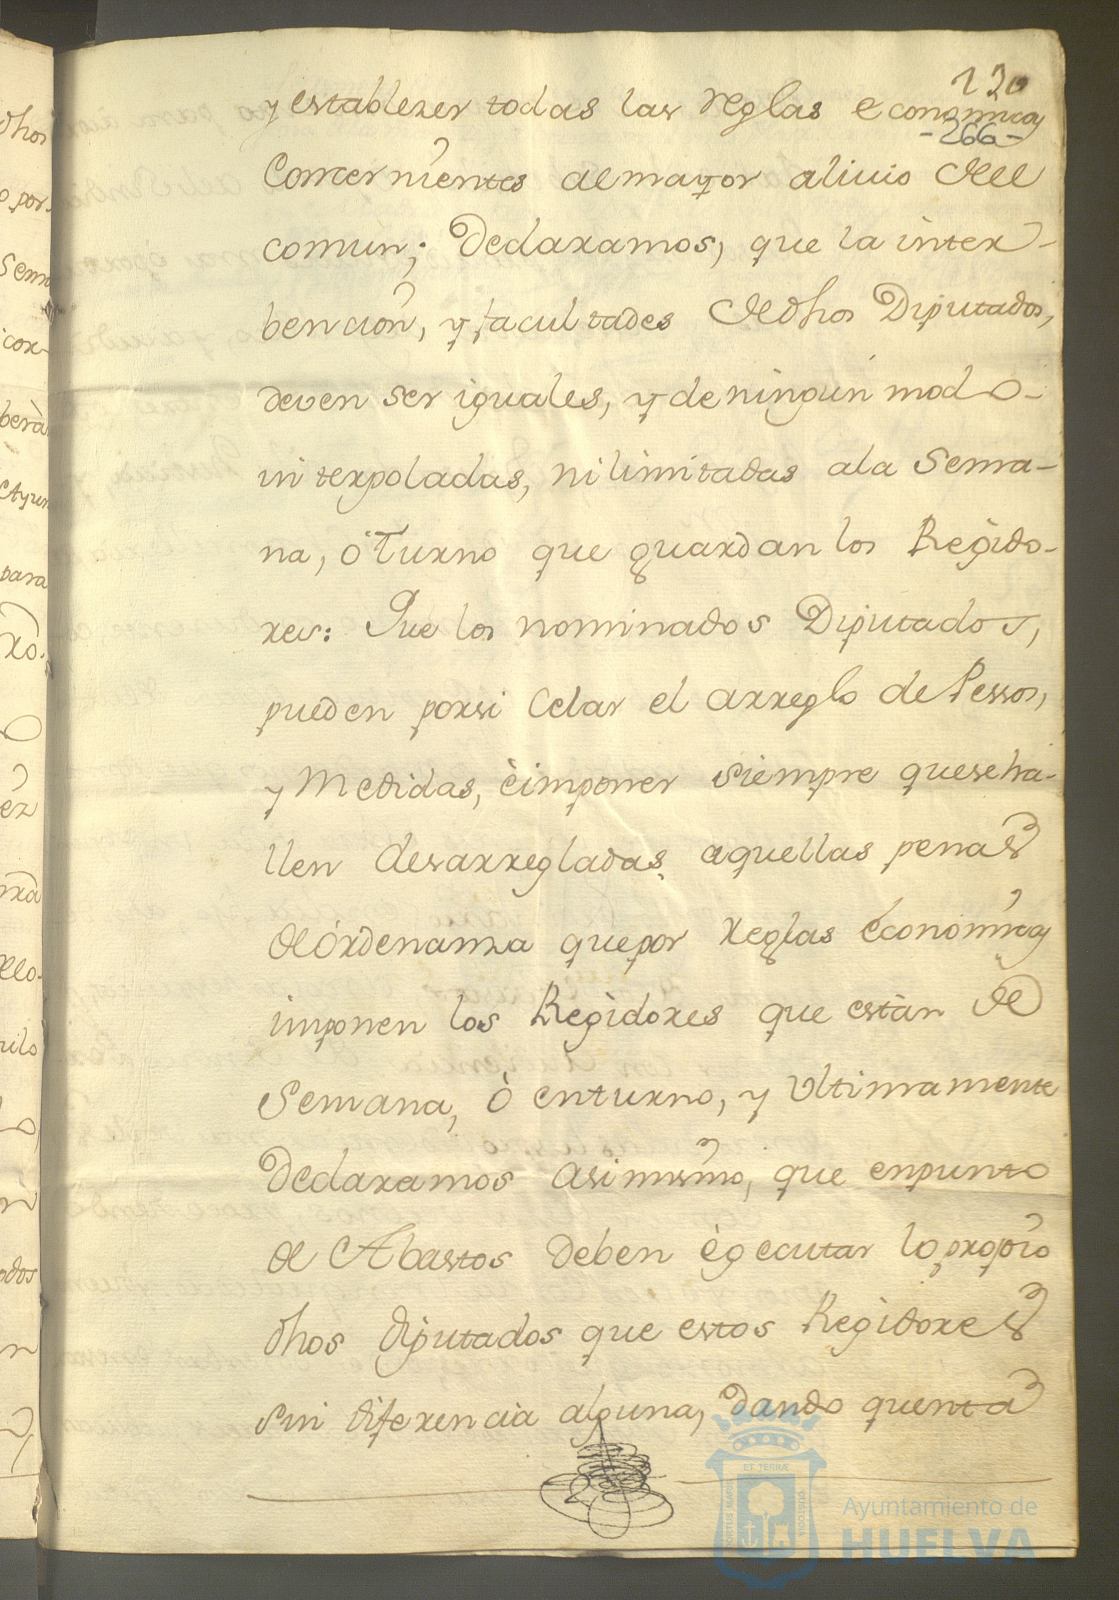 120
y establezer todas las reglas economicas
-266-
Concernientes al mayor alivio del
comun; Declaramos, que la inter-
bencion, y facultades de dhos Diputados,
deven ser iguales, y de ningun modo
interpoladas, ni limitadas a la Sema-
na, ò Turno que guardan los Regido-
res: Que los nominados Diputados,
pueden por si Celar el arreglo de Pessos,
y Medidas, è imponer siempre que se ha-
llen desarregladas aquellas penas
de òrdenanza que por reglas économicas
imponen los Regidores que estàn de
Semana, ò en turno, y Ultimamente
Declaramos asimismo, que en punto
de Abastos deben ègecutar lo propio
dhos Diputados que estos Regidores
sin diferencia alguna, dando quenta
dhos
por-
Sema
cor-
berà
Ayun
para
PORTUS MARIS ET TERRÆ CUSTODIA
Ayuntamiento de
HUELVA